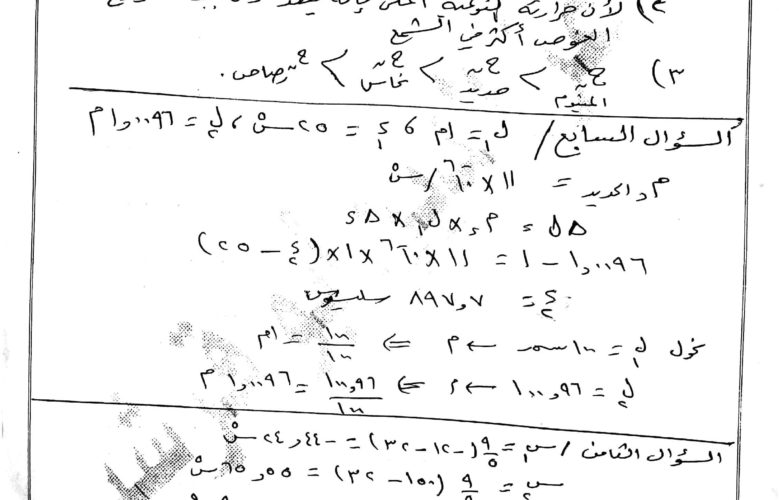 ٢) لأن حرارته النوعية
الغوص أكثر في الشمع
٣) ح ن المنيوم > ح ن حديد > ح ن نحاس > ح ن رصاص .
السؤال السابع / ل١ = ١م ، د١ = ٢٥ سْ ، ل٢ = ١,٠٠٩٦ م
م د الحديد = ١١ × ١٠⁻⁶ / سْ
Δل = م د × ل١ × Δد
١,٠٠٩٦ − ١ = ١١ × ١٠⁻⁶ × ١ × (د٢ − ٢٥)
د٢ = ٨٩٧,٧ سلسيوس
نحول ل١ = ١٠٠ سم ← م ⇐ ١٠٠/١٠٠ = ١م
ل٢ = ١٠٠,٩٦ ← م ⇐ ١٠٠,٩٦/١٠٠ = ١,٠٠٩٦ م
السؤال الثامن / س١ = ٥/٩ (−١٢ − ٣٢) = −٢٤,٤٤ سْ
س٢ = ٥/٩ (١٥٠ − ٣٢) = ٦٥,٥٥ سْ